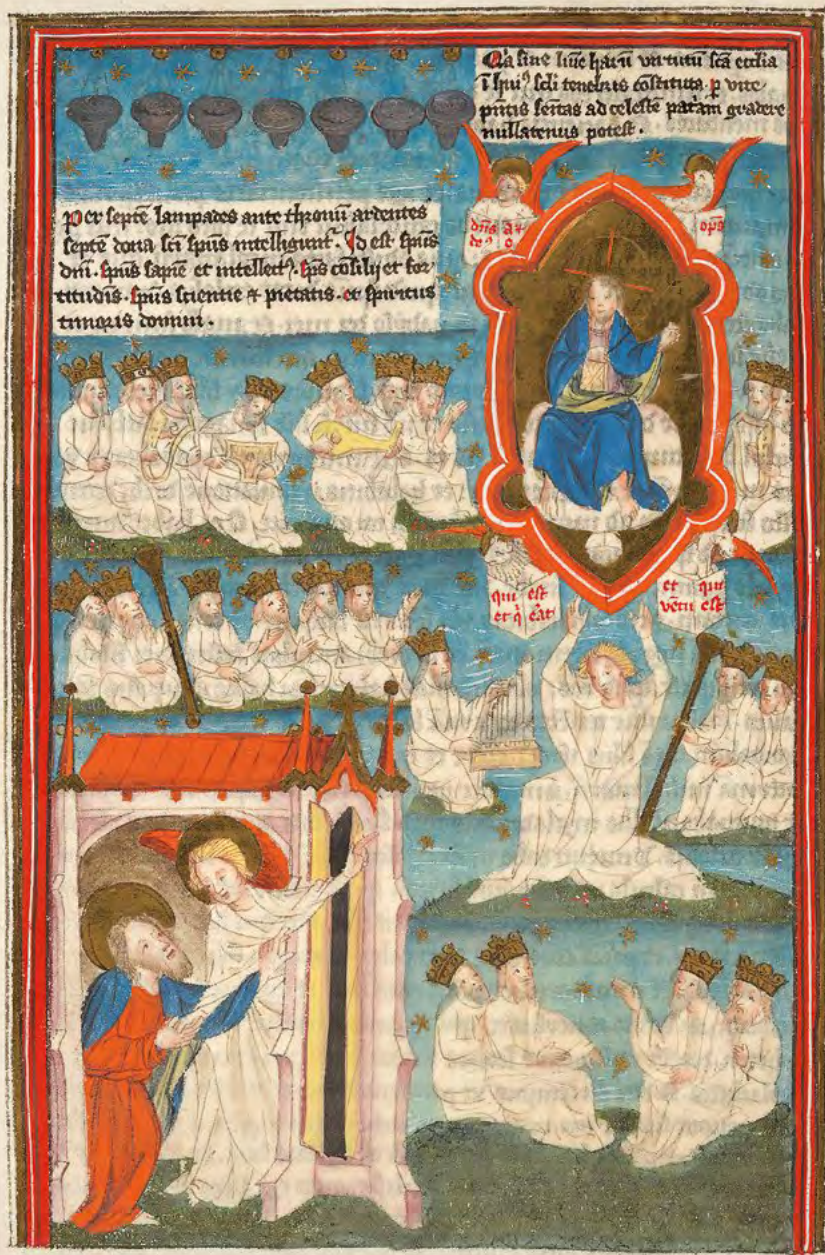 Qa sine luīe harū virtutū sca ecclia
ī huiꝰ scli tenebris cōstituta p vite
pntis semitas ad celestē patam gradere
nullatenus potest.
Per septē lampades ante thronū ardentes
septē dona sci spūs intelligunt. Id est spūs
dni. spūs sapie et intellectꝰ. sps cōsilij et for
titudis. spūs scientie et pietatis. et spiritus
timoris domini.
dns
deꝰ
o
ops
qui est
et q̇ erat
et qui
vētu est